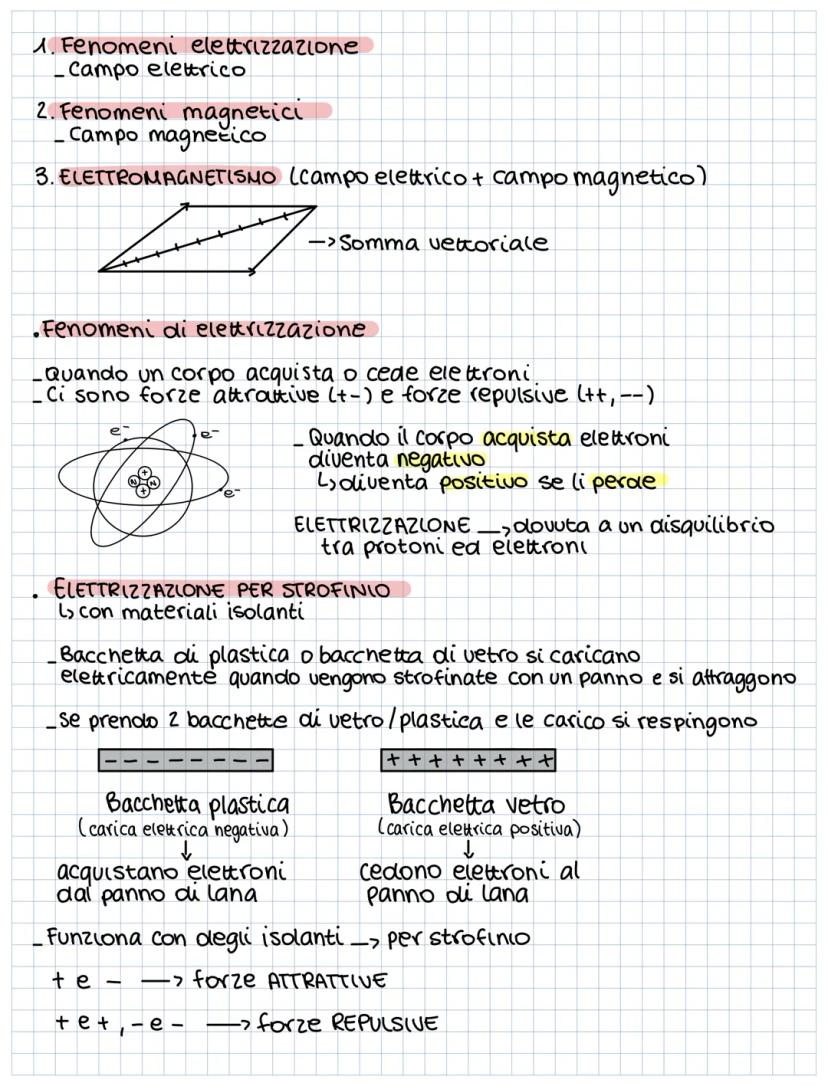 1. Fenomeni elettrizzazione
- Campo elettrico
2. Fenomeni magnetici
- Campo magnetico
3. ELETTROMAGNETISMO (campo elettrico + campo magnetico)
-> Somma vettoriale
. Fenomeni di elettrizzazione
- Quando un corpo acquista o cede elettroni
- Ci sono forze attrattive (+-) e forze repulsive (++, --)
e-
e-
- Quando il corpo acquista elettroni
diventa negativo
↳ diventa positivo se li perde
+
N N
+
e-
ELETTRIZZAZIONE —> dovuta a un disquilibrio
tra protoni ed elettroni
. ELETTRIZZAZIONE PER STROFINIO
↳ con materiali isolanti
- Bacchetta di plastica o bacchetta di vetro si caricano
elettricamente quando vengono strofinate con un panno e si attraggono
- Se prendo 2 bacchette di vetro/plastica e le carico si respingono
- - - - - - - -
+ + + + + + + +
Bacchetta plastica
(carica elettrica negativa)
↓
acquistano elettroni
dal panno di lana
Bacchetta vetro
(carica elettrica positiva)
↓
cedono elettroni al
panno di lana
- Funziona con degli isolanti —> per strofinio
+ e - —> forze ATTRATTIVE
+ e +, - e - —> forze REPULSIVE